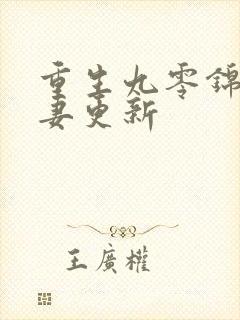 重生九零錦
妻更新
王廣權